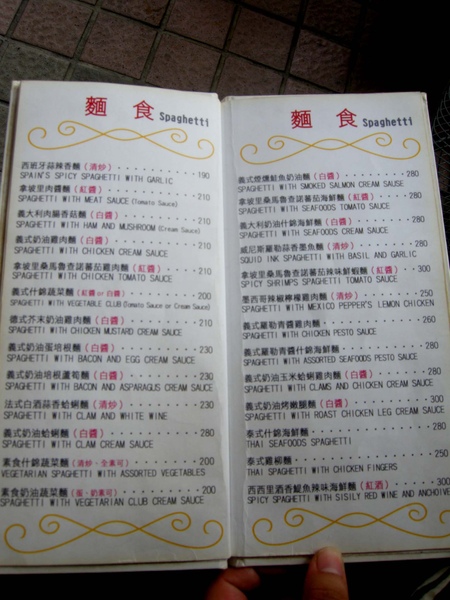 麵 食 Spaghetti
西班牙蒜辣香麵(清炒)‧‧‧‧‧‧‧‧‧190
SPAIN'S SPICY SPAGHETTI WITH GARLIC
拿坡里肉醬麵(紅醬)‧‧‧‧‧‧‧‧‧210
SPAGHETTI WITH MEAT SAUCE (Tomato Sauce)
義大利肉腸香菇麵(白醬)‧‧‧‧‧‧‧210
SPAGHETTI WITH HAM AND MUSHROOM (Cream Sauce)
義式奶油雞肉麵(白醬)‧‧‧‧‧‧‧‧210
SPAGHETTI WITH CHICKEN CREAM SAUCE
拿坡里桑馬魯查諾蕃茄雞肉麵(紅醬)‧‧210
SPAGHETTI WITH CHICKEN TOMATO SAUCE
義式什錦蔬菜麵(紅醬 or 白醬)‧‧‧‧‧200
SPAGHETTI WITH VEGETABLE CLUB (Tomato Sauce or Cream Sauce)
德式芥末奶油雞肉麵‧‧‧‧‧‧‧‧‧210
SPAGHETTI WITH CHICKEN MUSTARD CREAM SAUCE
義式奶油蛋培根麵(白醬)‧‧‧‧‧‧‧230
SPAGHETTI WITH BACON AND EGG CREAM SAUCE
義式奶油培根蘆筍麵(白醬)‧‧‧‧‧‧230
SPAGHETTI WITH BACON AND ASPARAGUS CREAM SAUCE
法式白酒蒜香蛤蜊麵(清炒)‧‧‧‧‧‧230
SPAGHETTI WITH CLAM AND WHITE WINE
義式奶油蛤蜊麵(白醬)‧‧‧‧‧‧‧‧280
SPAGHETTI WITH CLAM CREAM SAUCE
素食什錦蔬菜麵(清炒‧全素可)‧‧‧‧200
VEGETARIAN SPAGHETTI WITH ASSORTED VEGETABLES
素食奶油蔬菜麵(蛋‧奶素可)‧‧‧‧‧200
SPAGHETTI WITH VEGETARIAN CLUB CREAM SAUCE
麵 食 Spaghetti
義式煙燻鮭魚奶油麵(白醬)‧‧‧‧‧‧280
SPAGHETTI WITH SMOKED SALMON CREAM SAUSE
拿坡里桑馬魯查諾蕃茄海鮮麵(紅醬)‧‧280
SPAGHETTI WITH SEAFOODS TOMATO SAUCE
義大利奶油什錦海鮮麵(白醬)‧‧‧‧‧280
SPAGHETTI WITH SEAFOODS CREAM SAUCE
威尼斯羅勒蒜香墨魚麵(清炒)‧‧‧‧‧280
SQUID INK SPAGHETTI WITH BASIL AND GARLIC
拿坡里桑馬魯查諾蕃茄辣味鮮蝦麵(紅醬)‧‧300
SPICY SHRIMP'S SPAGHETTI TOMATO SAUCE
墨西哥辣椒檸檬雞肉麵(清炒)‧‧‧‧‧250
SPAGHETTI WITH MEXICO PEPPER'S LEMON CHICKEN
義式羅勒青醬雞肉麵‧‧‧‧‧‧‧‧‧260
SPAGHETTI WITH CHICKEN PESTO SAUCE
義式羅勒青醬什錦海鮮麵‧‧‧‧‧‧‧280
SPAGHETTI WITH ASSORTED SEAFOODS PESTO SAUCE
義式奶油玉米蛤蜊雞肉麵(白醬)‧‧‧‧280
SPAGHETTI WITH CLAMS AND CHICKEN CREAM SAUCE
義式奶油烤嫩腿麵(白醬)‧‧‧‧‧‧‧300
SPAGHETTI WITH ROAST CHICKEN LEG CREAM SAUCE
泰式什錦海鮮麵‧‧‧‧‧‧‧‧‧‧‧280
THAI SEAFOODS SPAGHETTI
泰式雞柳麵‧‧‧‧‧‧‧‧‧‧‧‧‧250
THAI SPAGHETTI WITH CHICKEN FINGERS
西西里酒香鯷魚辣味海鮮麵(紅酒)‧‧‧300
SPICY SPAGHETTI WITH SISILY RED WINE AND ANCHOVIE